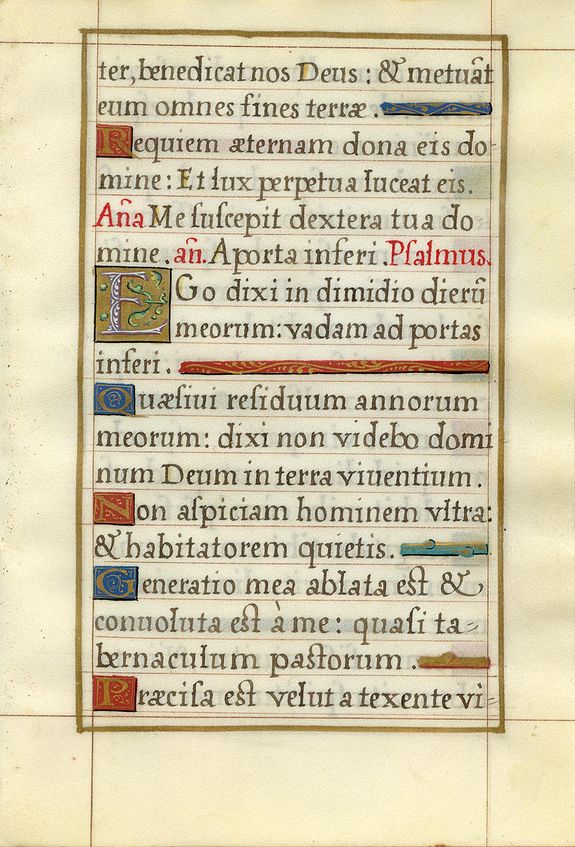 ter, benedicat nos Deus : & metuãt
eum omnes fines terræ .
Requiem æternam dona eis do-
mine : Et lux perpetua luceat eis.
Aña Me ſuſcepit dextera tua do
mine . añ. A porta inferi . Pſalmus.
EGo dixi in dimidio dierũ
meorum : vadam ad portas
inferi .
Quæſiui reſiduum annorum
meorum : dixi non videbo domi
num Deum in terra viuentium .
Non aſpiciam hominem vltra:
& habitatorem quietis .
Generatio mea ablata eſt &
conuoluta eſt à me : quaſi ta-
bernaculum paſtorum .
Præciſa eſt velut a texente vi-